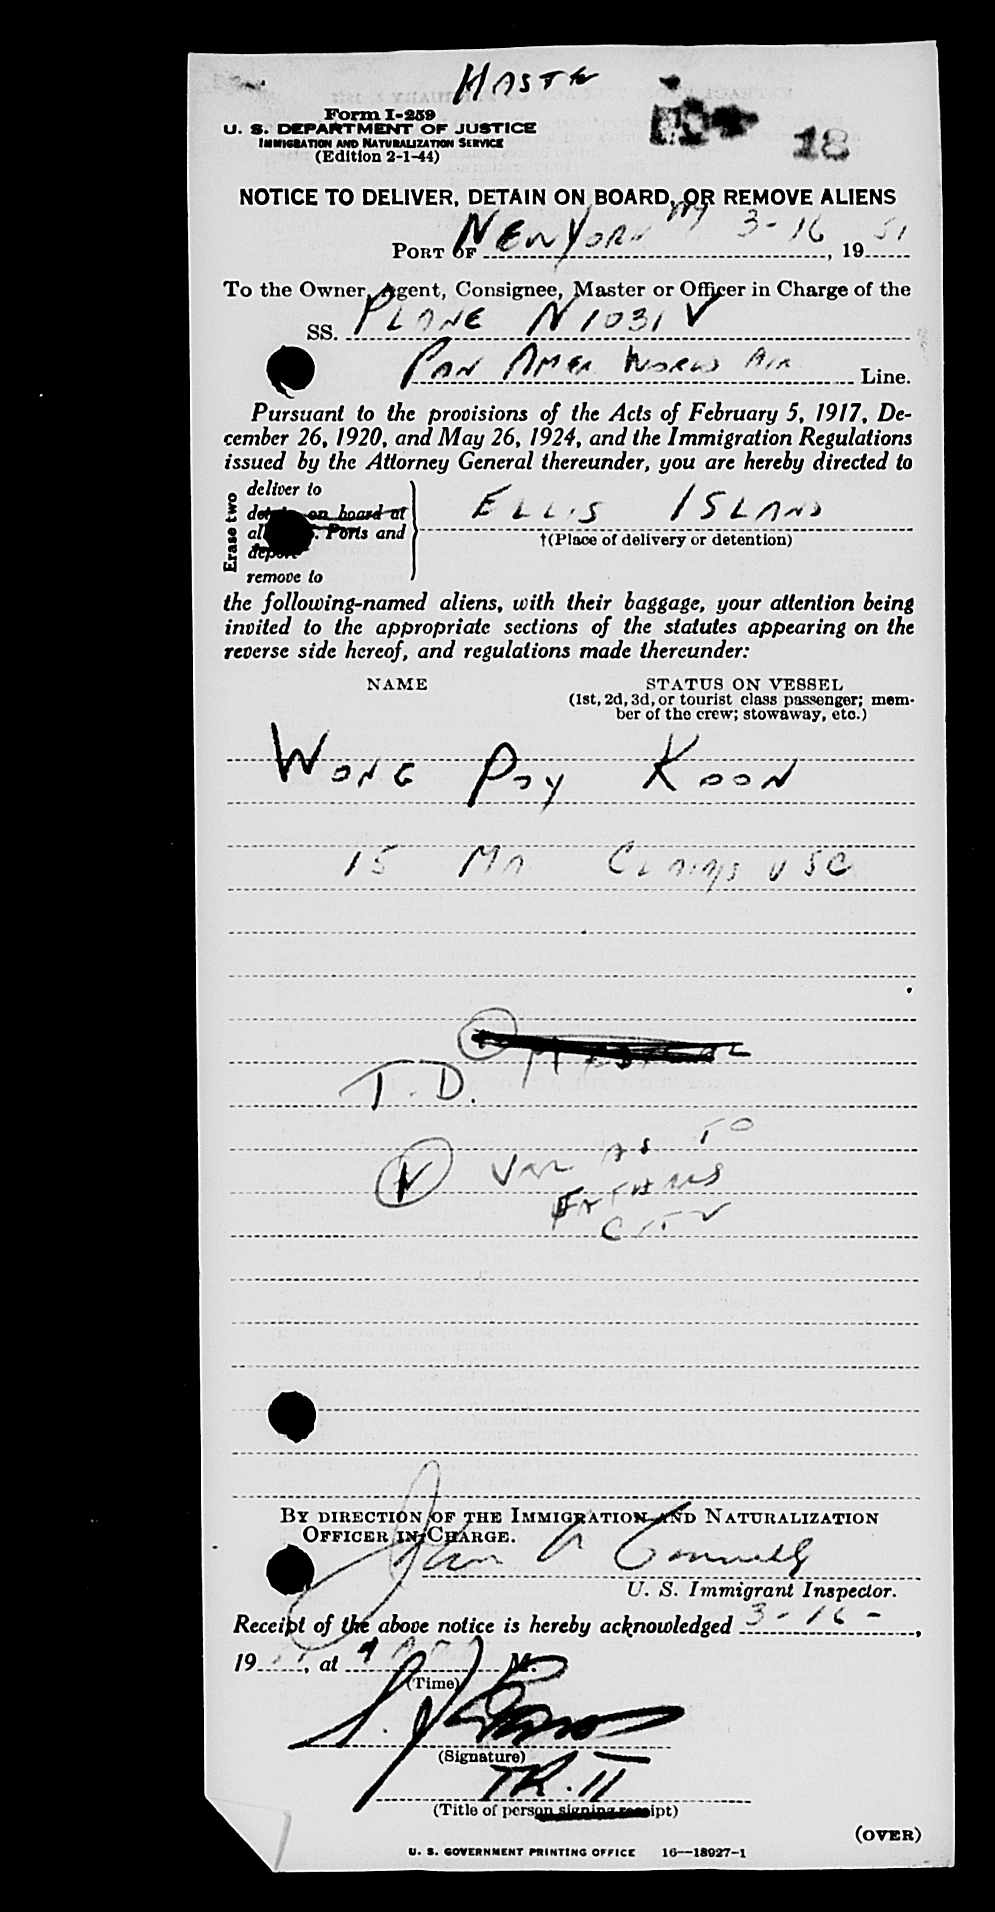 HASTE
Form I-259
U. S. DEPARTMENT OF JUSTICE
IMMIGRATION AND NATURALIZATION SERVICE
(Edition 2-1-44)
18
NOTICE TO DELIVER, DETAIN ON BOARD, OR REMOVE ALIENS
PORT OF NEW YORK NY 3-16, 1951
To the Owner, Agent, Consignee, Master or Officer in Charge of the
SS. PLANE N1031V
PAN AMER WORLD AIR Line.
Pursuant to the provisions of the Acts of February 5, 1917, De-
cember 26, 1920, and May 26, 1924, and the Immigration Regulations
issued by the Attorney General thereunder, you are hereby directed to
Erase two
deliver to
detain on board at
all Ports and
deport
remove to
ELLIS ISLAND
†(Place of delivery or detention)
the following-named aliens, with their baggage, your attention being
invited to the appropriate sections of the statutes appearing on the
reverse side hereof, and regulations made thereunder:
NAME
STATUS ON VESSEL
(1st, 2d, 3d, or tourist class passenger; mem-
ber of the crew; stowaway, etc.)
WONG POY KOON
15 MA CLAIMS USC
T.D.
V VER AS TO
FATHERS
CIT
BY DIRECTION OF THE IMMIGRATION AND NATURALIZATION
OFFICER IN CHARGE.
John A Connelly
U. S. Immigrant Inspector.
Receipt of the above notice is hereby acknowledged 3-16-,
19, at M.
(Time)
(Signature)
TR. II
(Title of person signing receipt)
(OVER)
U. S. GOVERNMENT PRINTING OFFICE 16—18927-1